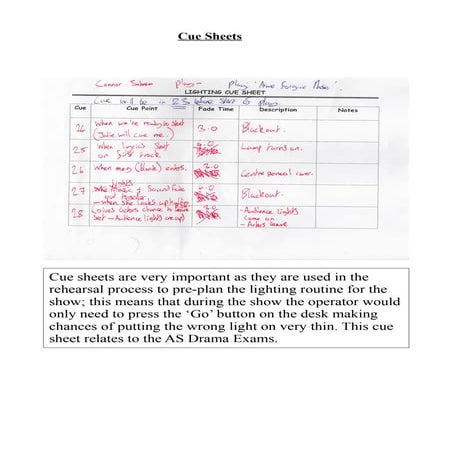 Cue Sheets
Connor
LIGHTING CUE SHEET
Cue will be in
Cue Cue Point Fade Time Description Notes
24 When we're ready to start 3.0 Blackout.
(Julie will cue me.)
25 When lyrics start Lamp turns on.
on first track.
26 When mary (blonde) enters. 3.0 Centre general cover.
27 Lights & Sound fade Blackout.
out together
- when she looks up
28 (gives actors chance to leave 3.0 - Audience lights
set - Audience lights are up) come on
- Actors leave
Cue sheets are very important as they are used in the
rehearsal process to pre-plan the lighting routine for the
show; this means that during the show the operator would
only need to press the ‘Go’ button on the desk making
chances of putting the wrong light on very thin. This cue
sheet relates to the AS Drama Exams.